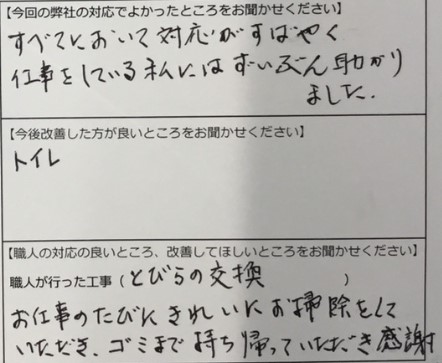 【今回の弊社の対応でよかったところをお聞かせください】
すべてにおいて対応がすばやく
仕事をしている私にはずいぶん助かり
ました.
【今後改善した方が良いところをお聞かせください】
トイレ
【職人の対応の良いところ、改善してほしいところをお聞かせください】
職人が行った工事(とびらの交換)
お仕事のたびにきれいにお掃除をして
いただき、ゴミまで持ち帰っていただき感謝